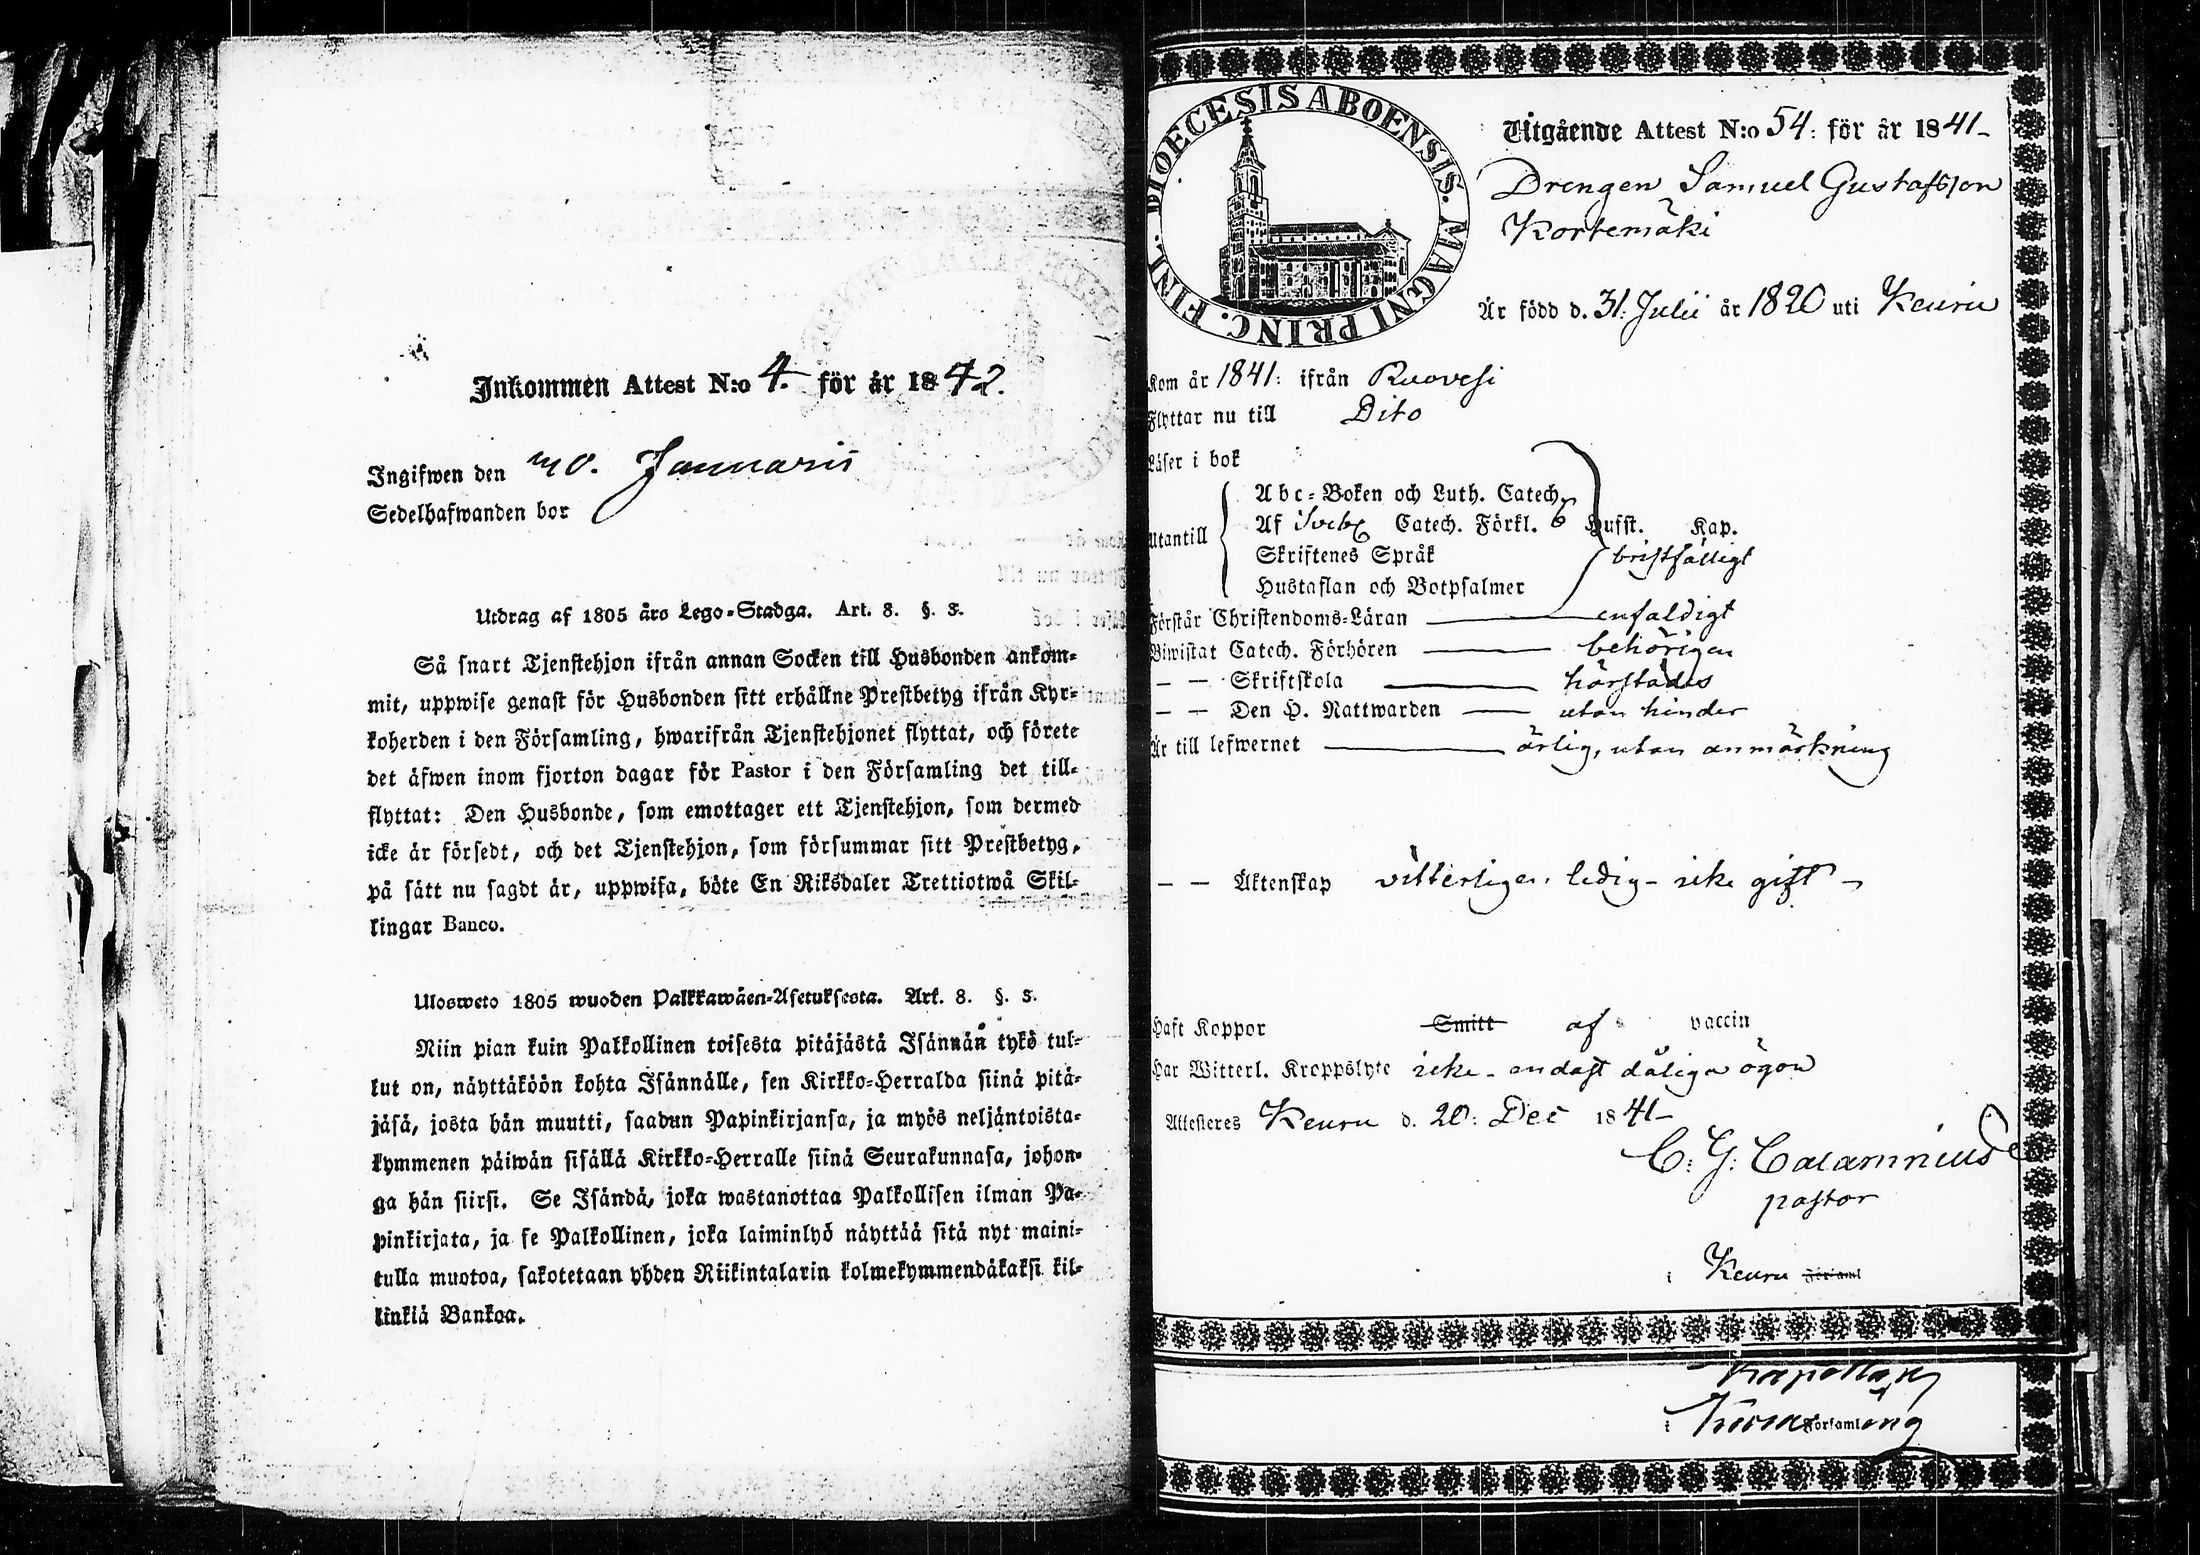 Inkommen Attest N:o 4. för år 1842.
Ingifwen den 10. Januarii
Sedelhafwanden bor
Utdrag af 1805 års Lego-Stadga. Art. 8. §. 3.
Så snart Tjenstehjon ifrån annan Socken till Husbonden ankom-
mit, uppwise genast för Husbonden sitt erhållne Prestbetyg ifrån Kyr-
koherden i den Församling, hwarifrån Tjenstehjonet flyttat, och förete
det äfwen inom fjorton dagar för Pastor i den Församling det till-
flyttat: Den Husbonde, som emottager ett Tjenstehjon, som dermed
icke är försedt, och det Tjenstehjon, som försummar sitt Prestbetyg,
på sätt nu sagdt är, uppwisa, böte En Riksdaler Trettiotwå Skil-
lingar Banco.
Ulosweto 1805 wuoden Palkkawäen-Asetuksesta. Art. 8. §. 3.
Niin pian kuin Palkollinen toisesta pitäjästä Isännän tykö tul-
lut on, näyttäköön kohta Isännälle, sen Kirkko-Herralda siinä pitä-
jäsä, josta hän muutti, saadun Papinkirjansa, ja myös neljäntoista-
kymmenen päiwän sisällä Kirkko-Herralle siinä Seurakunnasa, johon-
ga hän siirsi. Se Isändä, joka wastanottaa Palkollisen ilman Pa-
pinkirjata, ja se Palkollinen, joka laiminlyö näyttää sitä nyt maini-
tulla muotoa, sakotetaan yhden Riikintalarin kolmekymmendäkaksi kil-
linkiä Bankoa.
DIOECESIS ABOENSIS. MAGNI PRINC. FINL.
Utgående Attest N:o 54: för år 1841-
Drengen Samuel Gustafsson
Kortemäki
Är född d. 31. Julii år 1820 uti Keuru
Kom år 1841: ifrån Ruovesi
Flyttar nu till Dito
Läser i bok
Abc-Boken och Luth. Catech.
Utantill Af Sveb. Catech. Förkl. 6 Hufst. Kap.
Skriftenes Språk bristfälligt
Hustaflan och Botpsalmer
Förstår Christendoms-Läran enfaldigt
Biwistat Catech. Förhören behörigen
— — Skriftskola härstädes
— — Den H. Nattwarden utan hinder
Är till lefwernet ärlig, utan anmärkning
— — Äktenskap vitterligen ledig - icke gift -
Haft Koppor Smitt af vaccin
Har Witterl. Kroppslyte icke - endast dåliga ögon
Attesteres Keuru d. 20: Dec 1841-
C: G: Calamnius
pastor
i Keuru Församl
i Församling